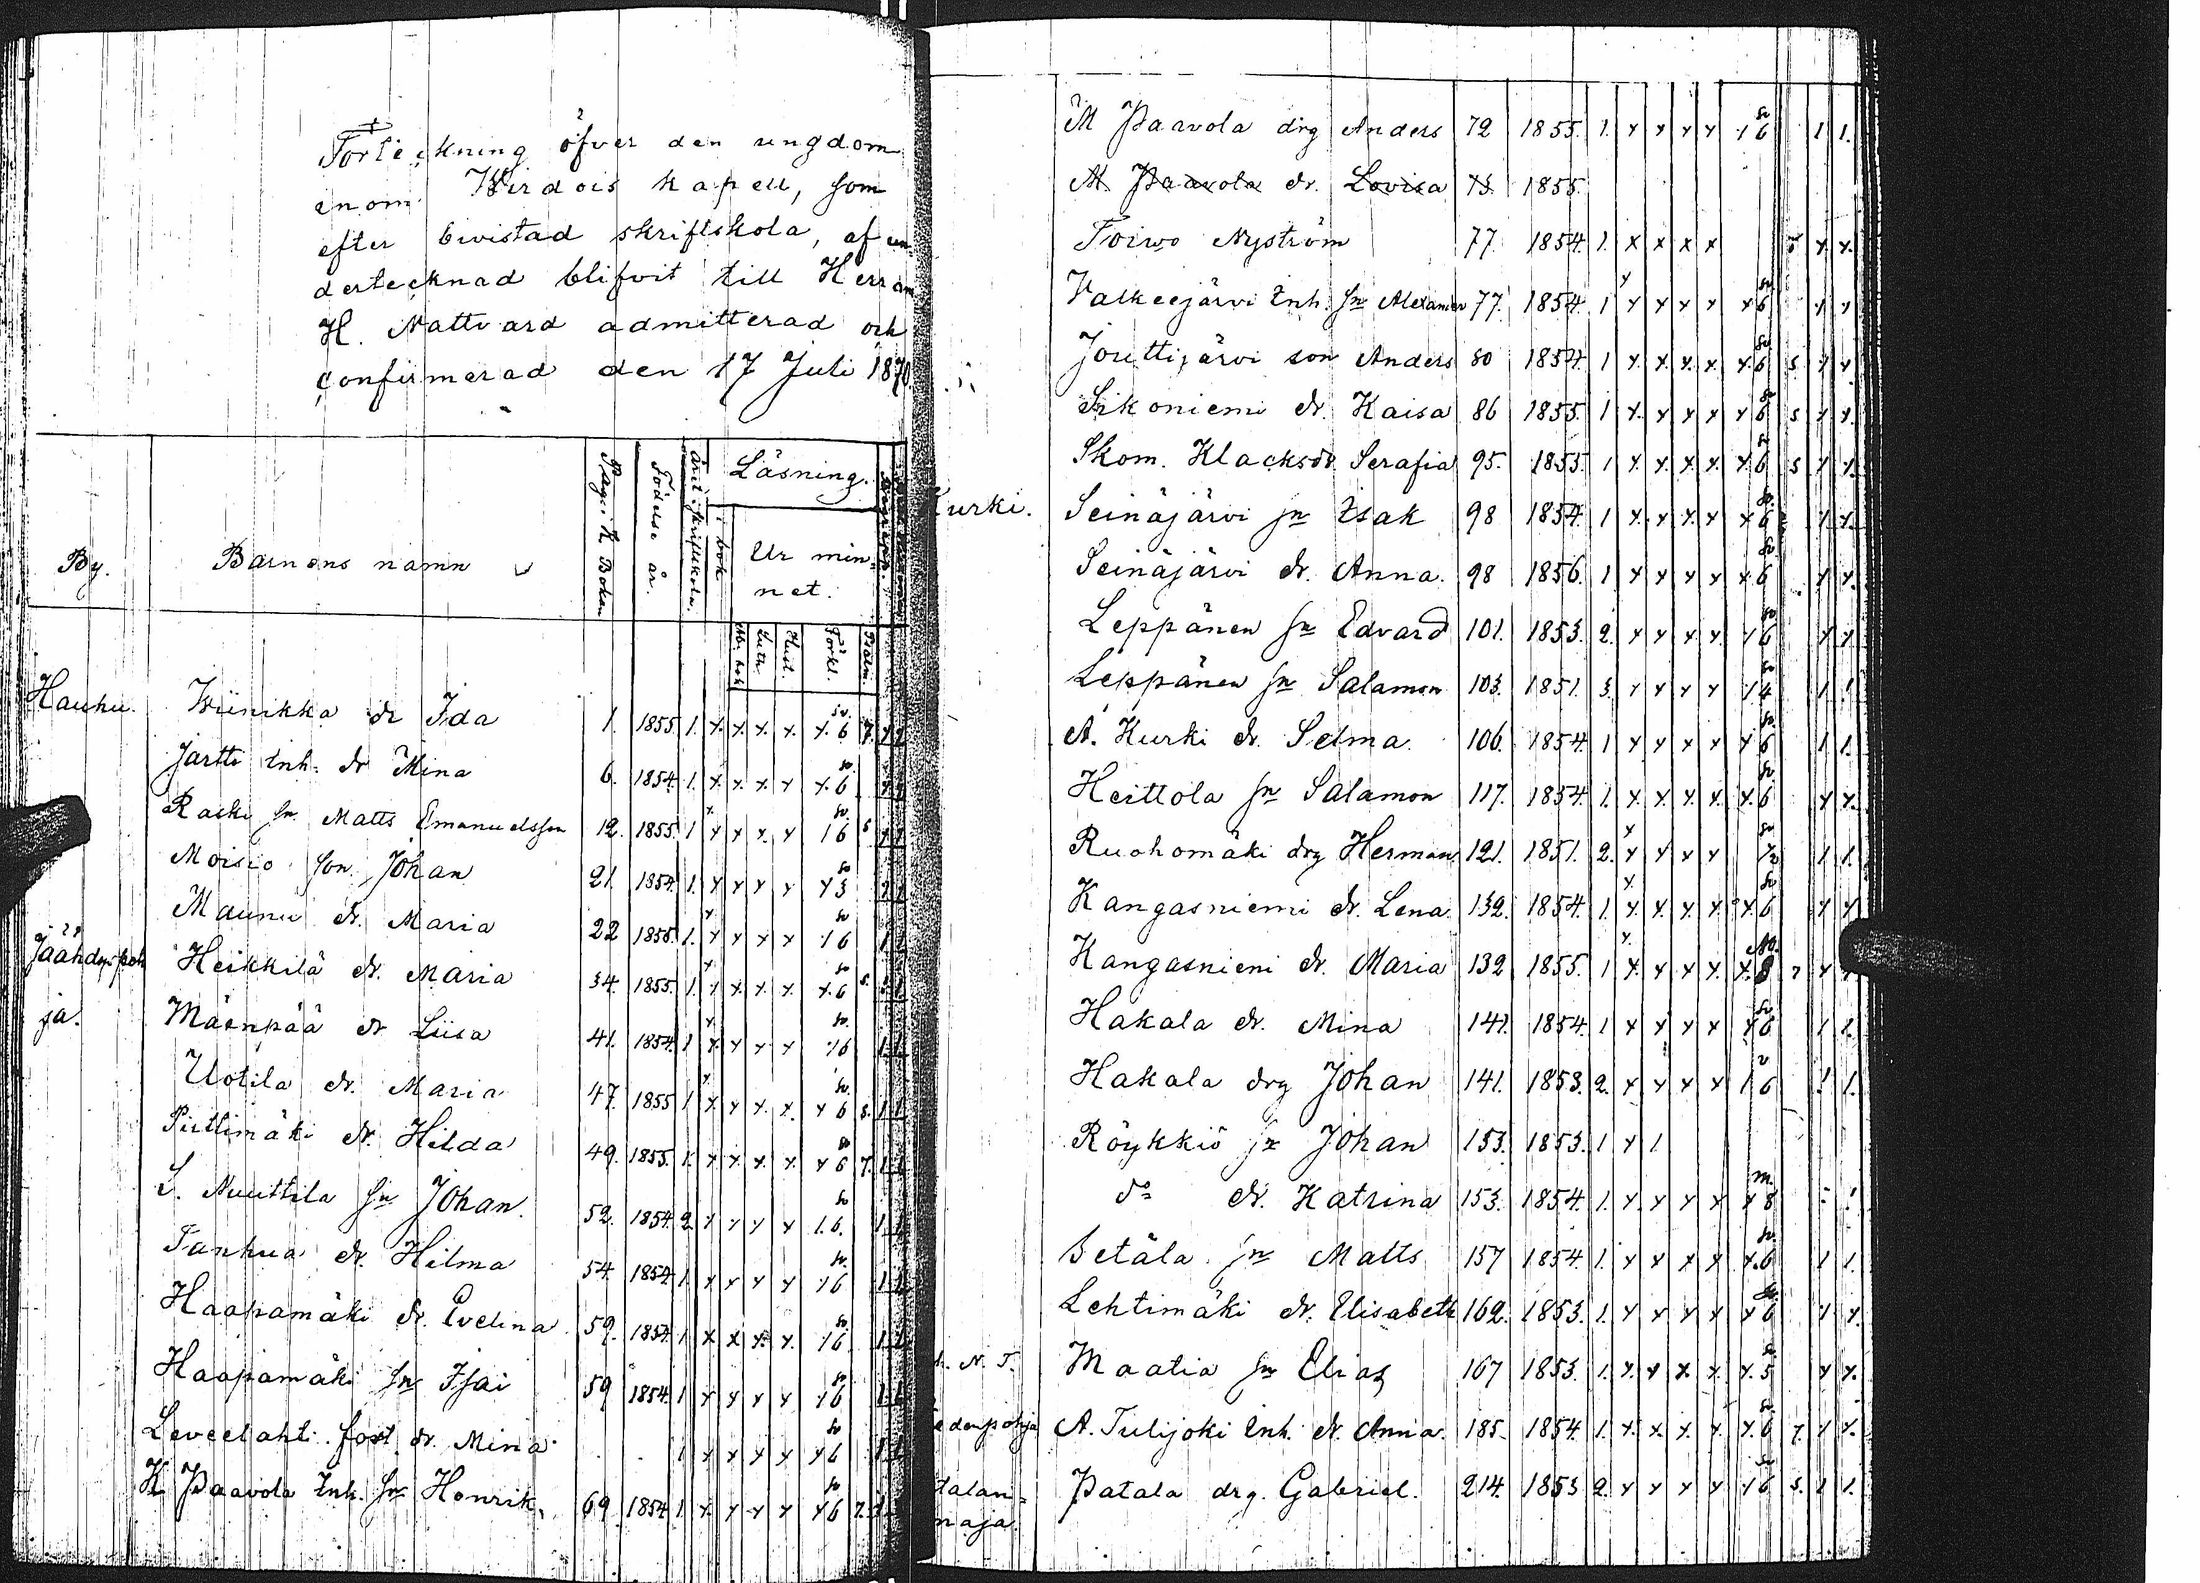 Förteckning öfver den ungdom
inom Wirdois kapell, som
efter bivistad skriftskola, af un
dertecknad blifvit till Herrans
H. Nattvard admitterad och
confirmerad den 17 Juli 1870.
By. Barnens namn Pag. i K. Boken Födelse år. Läsning.
i bok Ur min-
net.
Förkl. Psalm.
Hauhu. Wiinikka dr Ida 1. 1855. 1. x. x. x. x. x. 6 7.
Jartti Inh. dr Mina 6. 1854. 1. x. x x. x x. 6
Raski sn. Matts Emanuelsson 12. 1855. 1 x x x. x 1 6 5
Moisio son Johan 21. 1854. 1. x x x x x 3
Maunu dr. Maria 22 1855. 1. x x x x 1 6
Jäähdyspoh Heikkilä dr. Maria 34. 1855. 1. x x. x. x. x. 6 5.
ja. Mäenpää dr Liisa 41. 1854. 1 x. x x. x 1 6
Uotila dr. Maria 47. 1855 1. x. x x. x. x 6 5.
Piittimäki dr. Hilda 49. 1855. 1. x x. x. x. x 6 7.
S. Nuuttila sn Johan. 52. 1854. 2. x x x x 1. 6.
Tanhua dr. Hilma 54. 1854 1. x x x x 1 6
Haapamäki dr. Evelina 59. 1854. 1 x x x. x. 1 6
Haapamäki sn Isai 59 1854. 1 x x x x x 6
Leveelaht. fost. dr. Mina 1 x x x x x 6
K Paavola Inh. sn Henrik. 69. 1854. 1. x. x x x x 6 7.
M Paavola drg Anders 72 1855. 1. x x x x 1 6 1 1.
M Paavola dr. Lovisa 73. 1855.
Toivo Nyström 77. 1854. 1. x x x x 5 x x.
Valkeejärvi Inh. sn Alexander 77. 1854. 1 x x x x x 6 x x
Jouttijärvi son Anders 80 1854. 1 x x. x. x. x. 6 5. x x
Sikoniemi dr. Kaisa 86 1855. 1 x. x x x x 6 5 x x.
Skom. Klacksdr. Serafia 95. 1855. 1 x. x. x. x. x. 6 5 x x.
Kurki. Seinäjärvi sn Isak 98 1854. 1 x. x. x. x x 6 1. x.
Seinäjärvi dr. Anna. 98 1856. 1 x x x x x 6 x x.
Leppänen sn Edvard 101. 1853. 2. x x x x. 1 6 x x.
Leppänen sn Salamon 103. 1851. 3. x x x x 1 4 1 1.
A. Kurki dr. Selma. 106. 1854. 1 x x x x x 6 1 1.
Heittola sn Salamon 117. 1854. 1. x. x. x. x. x. 6 x x.
Ruohomäki drg Herman 121. 1851. 2. x x x x 1 1.
Kangasniemi dr. Lena. 132. 1854. 1. x. x. x. x. x. 6 x x
Kangasniemi dr. Maria 132 1855. 1 x. x x x. x. 8 7 x
Hakala dr. Mina 141. 1854. 1 x x x x x 6 1 1.
Hakala drg Johan 141. 1853. 2. x x x x 1 6 1 1.
Röykkiö sn Johan 153. 1853. 1 x 1
do dr. Katrina 153. 1854. 1. x x x x x 8
Setälä sn Matts 157 1854. 1. x x x x x. 6 1 1.
Lehtimäki dr. Elisabeth 162. 1853. 1. x x x x x 6 1 x.
h. N. T. Maatia sn Elias 167 1853. 1. x. x x x. x. 5 x x.
edenpohja A. Tulijoki Inh. dr. Anna. 185. 1854. 1. x. x. x. x x. 6 7. 1 x.
talan-
naja. Patala drg. Gabriel. 214. 1853 2. x x x x 1 6 5. 1 1.